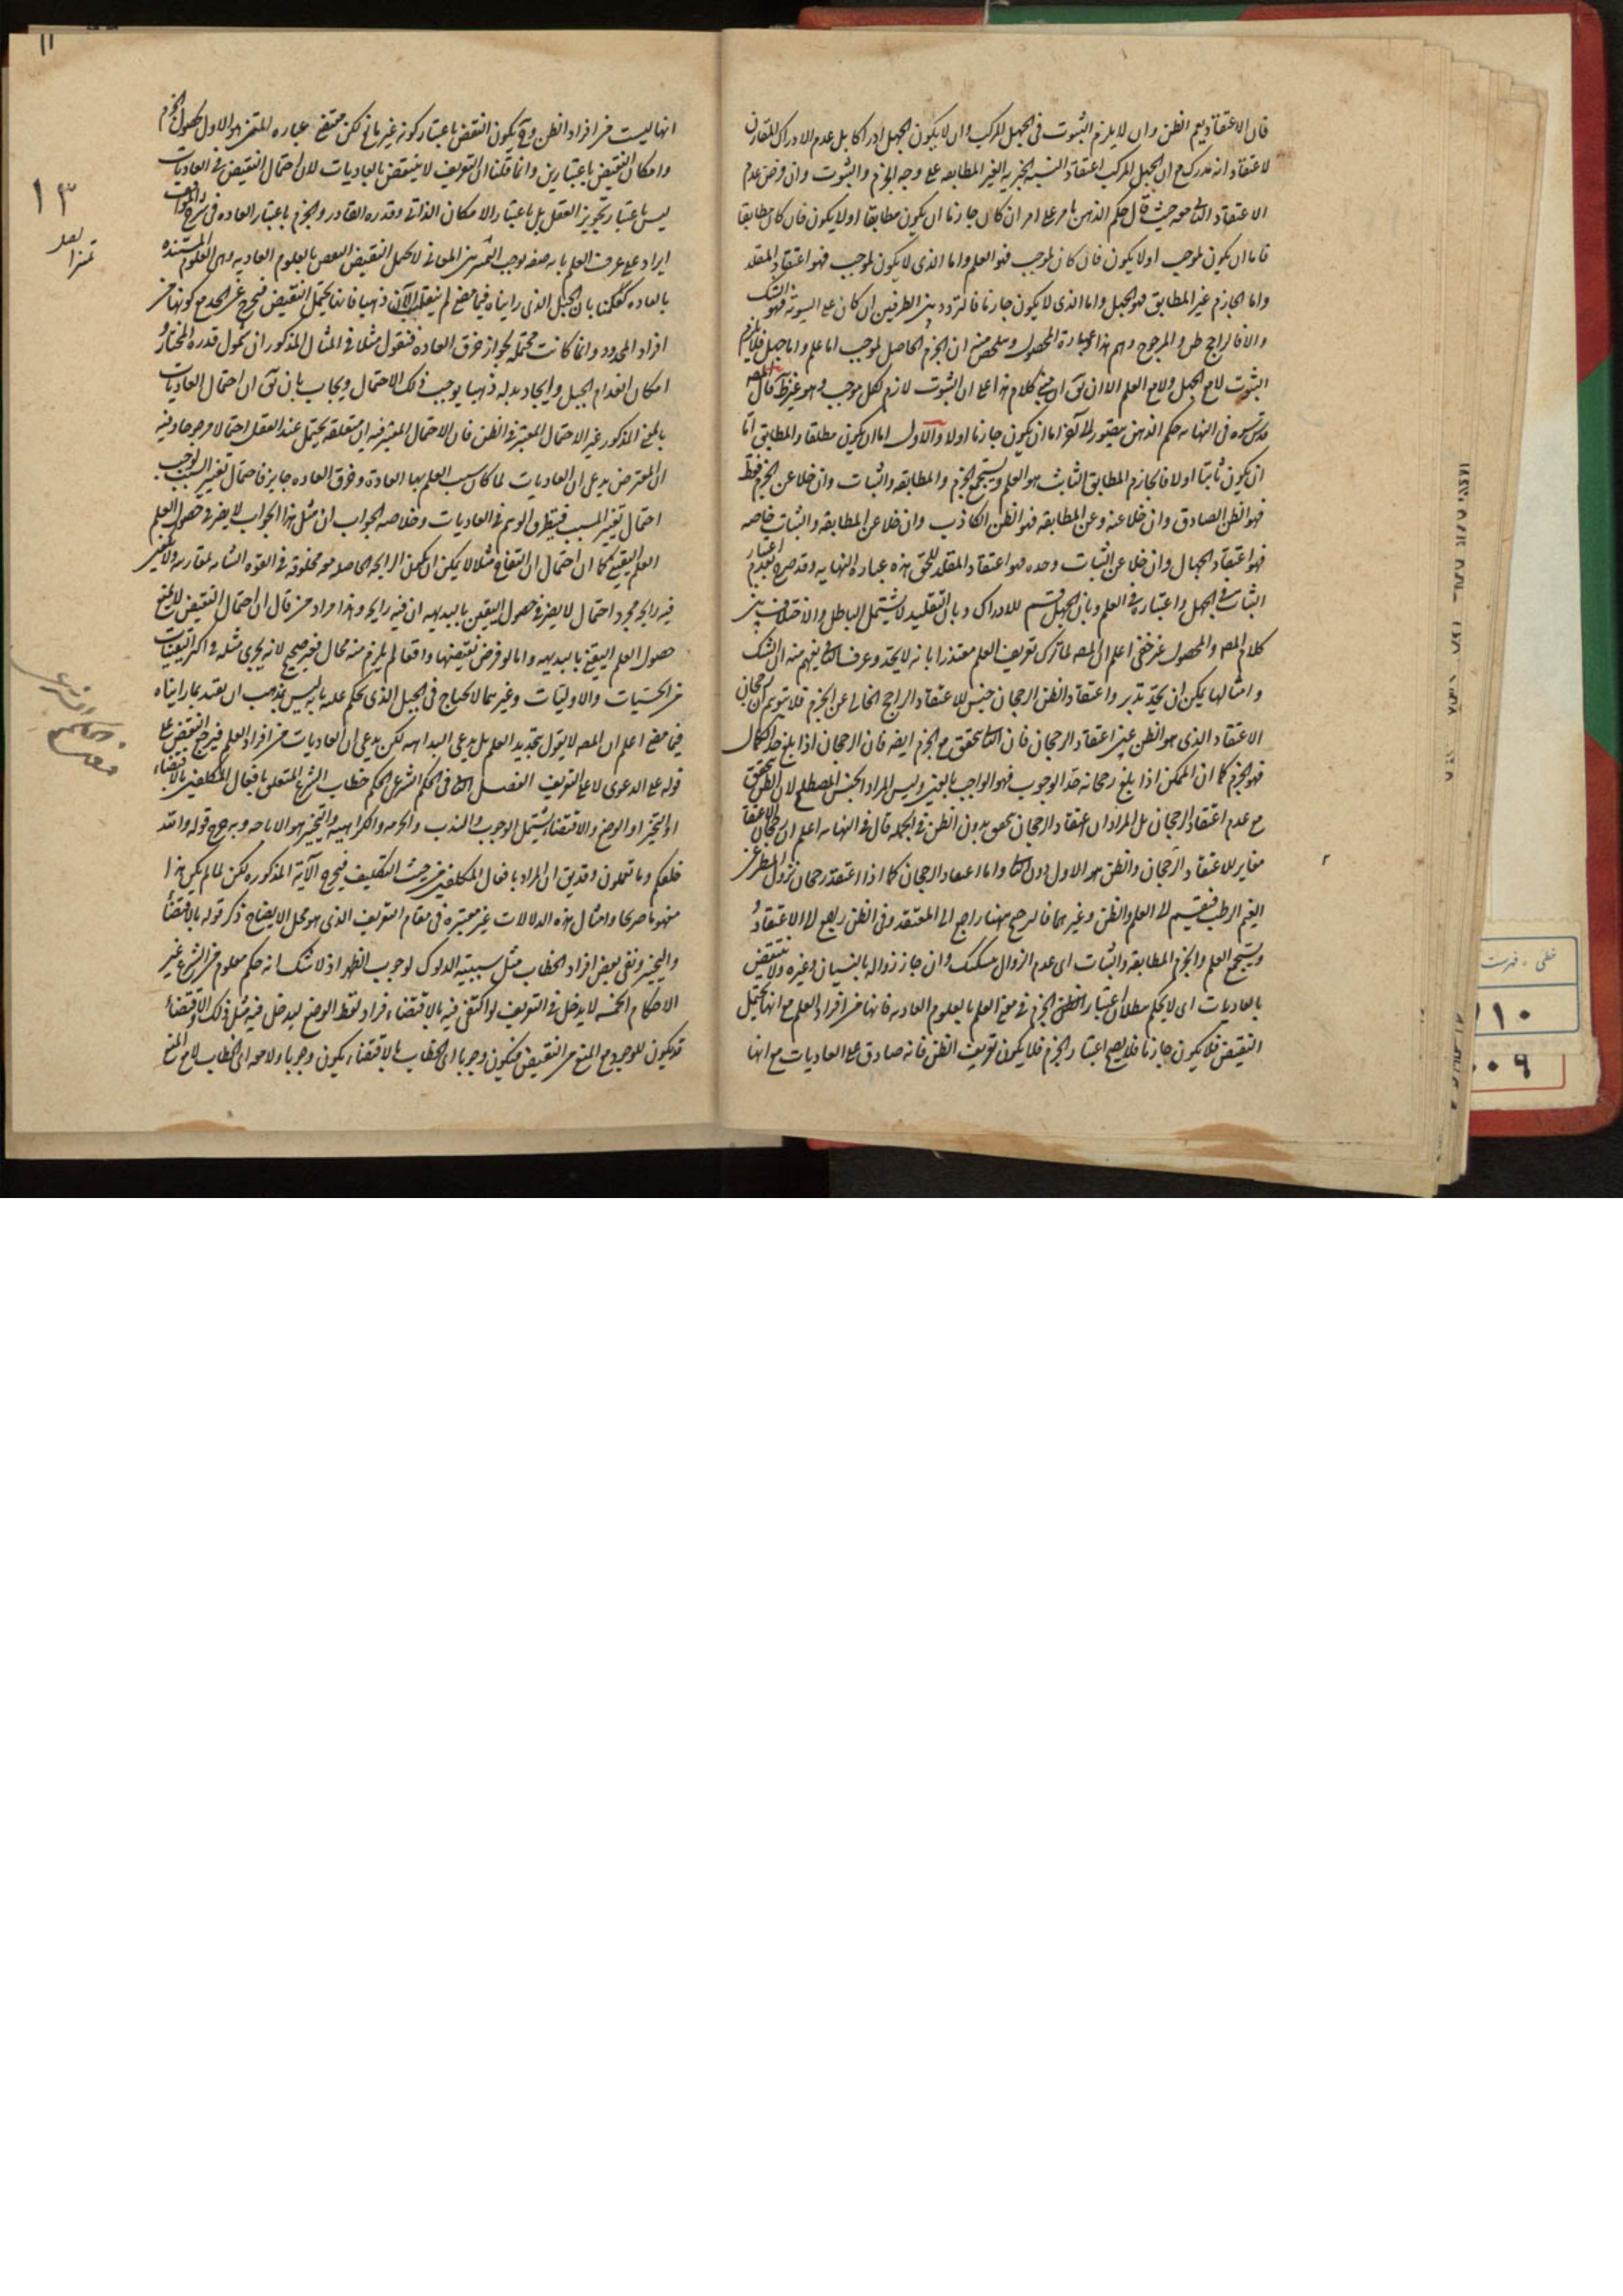 فان الاعتقاد يعم الظن وان لا يلزم الثبوت فى الجهل المركب وان لا يكون الجهل ادراكا بل عدم الادراك المقارن
لاعتقاد انه مدرك مع ان الجهل المركب اعتقاد النسبة الخبرية الغير المطابقه على وجه الجزم والثبوت وان فرض عدم
الاعتقاد حيث قال حكم الذهن بامر على امر ان كان جازما اما ان يكون مطابقا اولا يكون فان كان مطابقا
فاما ان يكون لموجب اولا يكون فان كان لموجب فهو العلم واما الذى لا يكون لموجب فهو اعتقاد المقلد
واما الجازم غير المطابق فهو الجهل واما الذى لا يكون جازما فالتردد بين الطرفين ان كان على السوية فهو الشك
والا فالراجح ظن والمرجوح وهم هذا عبارة المحصول وملخص منه ان الجزم الحاصل لموجب اما علم واما جهل فلا يلزم
الثبوت لا مع الجهل ولا مع العلم الا ان يق ان كلام هذا على ان الثبوت لازم لكل موجب وهو غير ظ قال المصـ
قدس سره فى النهايه حكم الذهن اما ان يكون جازما اولا والاول اما ان يكون مطلقا والمطابق اما
ان يكون ثابتا اولا فالجازم المطابق الثابت هو العلم ويستجمع الجزم والمطابقه والثبات وان خلا عن الجزم فقط
فهو الظن الصادق وان خلا عنه وعن المطابقه فهو الظن الكاذب وان خلا عن المطابقه والثبات خاصه
فهو اعتقاد الجهال وان خلا عن الثبات وحده فهو اعتقاد المقلد للحق هذه عبارة النهايه وقد صرح بعدم اعتبار
الثبات فى الجهل واعتباره فى العلم وبان الجهل قسم للادراك وبان التقليد لا يشتمل الباطل والاختلاف بين
كلام المصـ والمحصول غير خفى اعلم ان المصـ لما ترك تعريف العلم معتذرا بانه لا يحد وعرف يفهم منه ان الشك
وامثالها يمكن ان يحد تدبر واعتقاد الظن الرجحان جنس للاعتقاد الراجح الخالى عن الجزم فلا يتوهم ان رجحان
الاعتقاد الذى هو الظن عين اعتقاد الرجحان فان يتحقق مع الجزم ايضه فان الرجحان اذا بلغ حد الكمال
فهو الجزم كما ان الممكن اذا بلغ رجحانه حد الوجوب فهو الواجب بالغير وليس المراد الجنس المصطلح لان الظن يتحقق
مع عدم اعتقاد الرجحان بل المراد ان اعتقاد الرجحان يتحقق بدون الظن فى الجمله قال فى النهايه اعلم ان رجحان الاعتقاد
مغاير لاعتقاد الرجحان والظن هو الاول دون واما اعتقاد الرجحان كما اذا اعتقد رجحان نزول المطر عن
الغيم الرطب فينقسم الى العلم والظن وغيرهما فالرجح ههنا راجع الى المعتقد وفى الظن يرجع الى الاعتقاد و
ويستجمع العلم والجزم المطابقه والثبات اى عدم الزوال وان جاز زواله بالنسيان وغيره ولا ينتقض
بالعاديات اى لا يحكم ببطلان اعتبار الجزم فى معنى العلم بالعلوم العاديه فانها من افراد العلم مع انها تحتمل
النقيض فلا يكون جازما فلا يصح اعتبار الجزم فلا يكون تعريف الظن فانه صادق على العاديات مع انها
١١
انها ليست من افراد الظن وقد يكون النقض باعتبار كونه غير مانع لكن مقتضى عباره المتن هو الاول لحصول الجزم
وامكان النقيض باعتبارين وانما قلنا ان التعريف لا ينتقض بالعاديات لان احتمال النقيض فى العاديات
ليس باعتبار تجويز العقل بل باعتبار الامكان الذاتى وقدره القادر والجزم باعتبار العاده فى شرح المواقف
ايراد على عرف العلم بانه صفه توجب التمييز بين المعانى لا تحتمل النقيض النقض بالعلوم العاديه وهى العلوم المستنده
بالعاده كعلمنا بان الجبل الذى رايناه فيما مضى لم ينقلب الآن ذهبا فانها تحتمل النقيض فتخرج عن الحد مع كونها من
افراد المحدود وانما كانت محتمله لجواز خرق العاده فنقول مثلا فى المثال المذكور ان شمول قدرة المختار و
امكان انعدام الجبل وايجاد بدله ذهبا يوجب ذلك الاحتمال ويجاب بان يق ان احتمال العاديات
بالمعنى المذكور غير الاحتمال المعتبر فى الظن فان الاحتمال المعتبر فيه ان متعلقه يحتمل عند العقل احتمالا مرجوحا وفيه
ان المعترض يدعى ان العاديات لما كان سبب العلم بها العادة وخرق العاده جايز فاحتمال تغير السبب يوجب
احتمال تغير المسبب فيتطرق الوهم فى العاديات وخلاصه الجواب ان مثل هذا الجواب لا يضر فى حصول العلم
العلم اليقينى كما ان احتمال ان التفاح مثلا لا يمكن ان يكون الرايحه الحاصله منه مخلوقه فى القوه الشامه لمقارنه ولا يكون
فيه رايحه مجرد احتمال لا يضر فى حصول اليقين بالبديهه ان فيه رايحه وهذا مراد من قال ان احتمال النقيض لا يمنع
حصول العلم اليقينى بالبديهه واما لو فرض نقيضها واقعا لم يلزم منه محال فغير صحيح لانه يجرى مثله فى اكثر اليقينيات
من الحسيات والاوليات وغيرهما لا يحتاج فى الجبل الذى يحكم عليه بانه ليس بذهب ان يقيد بما رايناه
فيما مضى اعلم ان المصـ لا يقول بتحديد العلم بل يدعى البداهه لكن يدعى ان العاديات من افراد العلم فيرجع النقض على
قوله على الدعوى لا على التعريف الفصل فى الحكم الشرعى الحكم خطاب الشرع المتعلق بافعال المكلفين بالاقتضاء
او التخيير او الوضع والاقتضاء يشتمل الوجوب والندب والحرمه والكراهية والتخيير هو الاباحه وبه خرج قوله والله
خلقكم وما تعملون وقد يق ان المراد بافعال المكلفين من حيث التكليف فيخرج الآية المذكوره لكن لما لم يكن هذا
مفهوما صريحا وامثال هذه الدلالات غير معتبره فى مقام التعريف الذى هو محل الايضاح ذكر قوله بالاقتضاء
والتخيير وبقى بعض افراد الخطاب مثل سببيه الدلوك لوجوب الظهر اذ لا شك انه حكم معلوم من الشرع غير
الاحكام الخمسه لا يدخل فى التعريف لو اكتفى فيه بالاقتضاء فزاد لفظ الوضع ليدخل فيه مثل ذلك والاقتضاء
قد يكون للوجود مع المنع من النقيض فيكون وجوبا اى الخطاب بالاقتضاء يكون وجوبا ولا معه اى الخطاب لا مع المنع
١٣